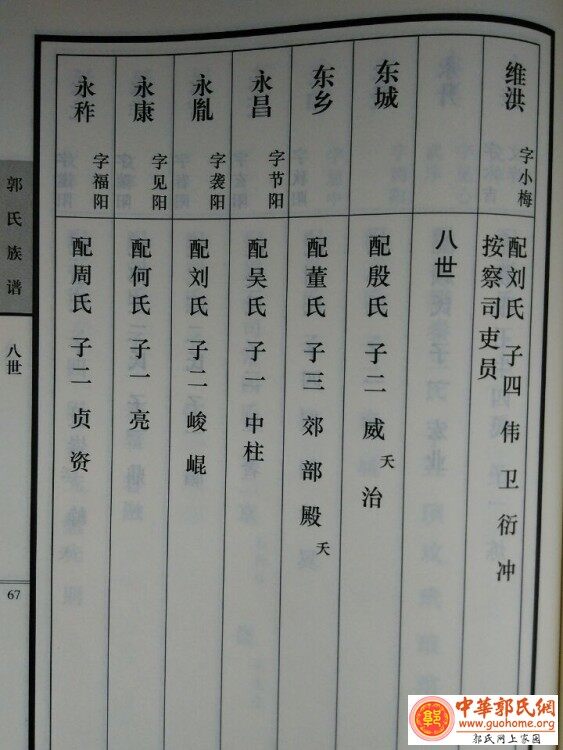 维洪 字小梅 配刘氏 子四 伟 卫 衍 冲
按察司吏员
八世
东城 配殷氏 子二 威 夭 治
东乡 配董氏 子三 郊 部 殿 夭
永昌 字节阳 配吴氏 子一 中柱
永胤 字袭阳 配刘氏 子二 峻 崐
永康 字见阳 配何氏 子一 亮
永祚 字福阳 配周氏 子二 贞 资
郭氏族谱
八世
67
中華郭氏網
www.guohome.org
郭氏网上家园